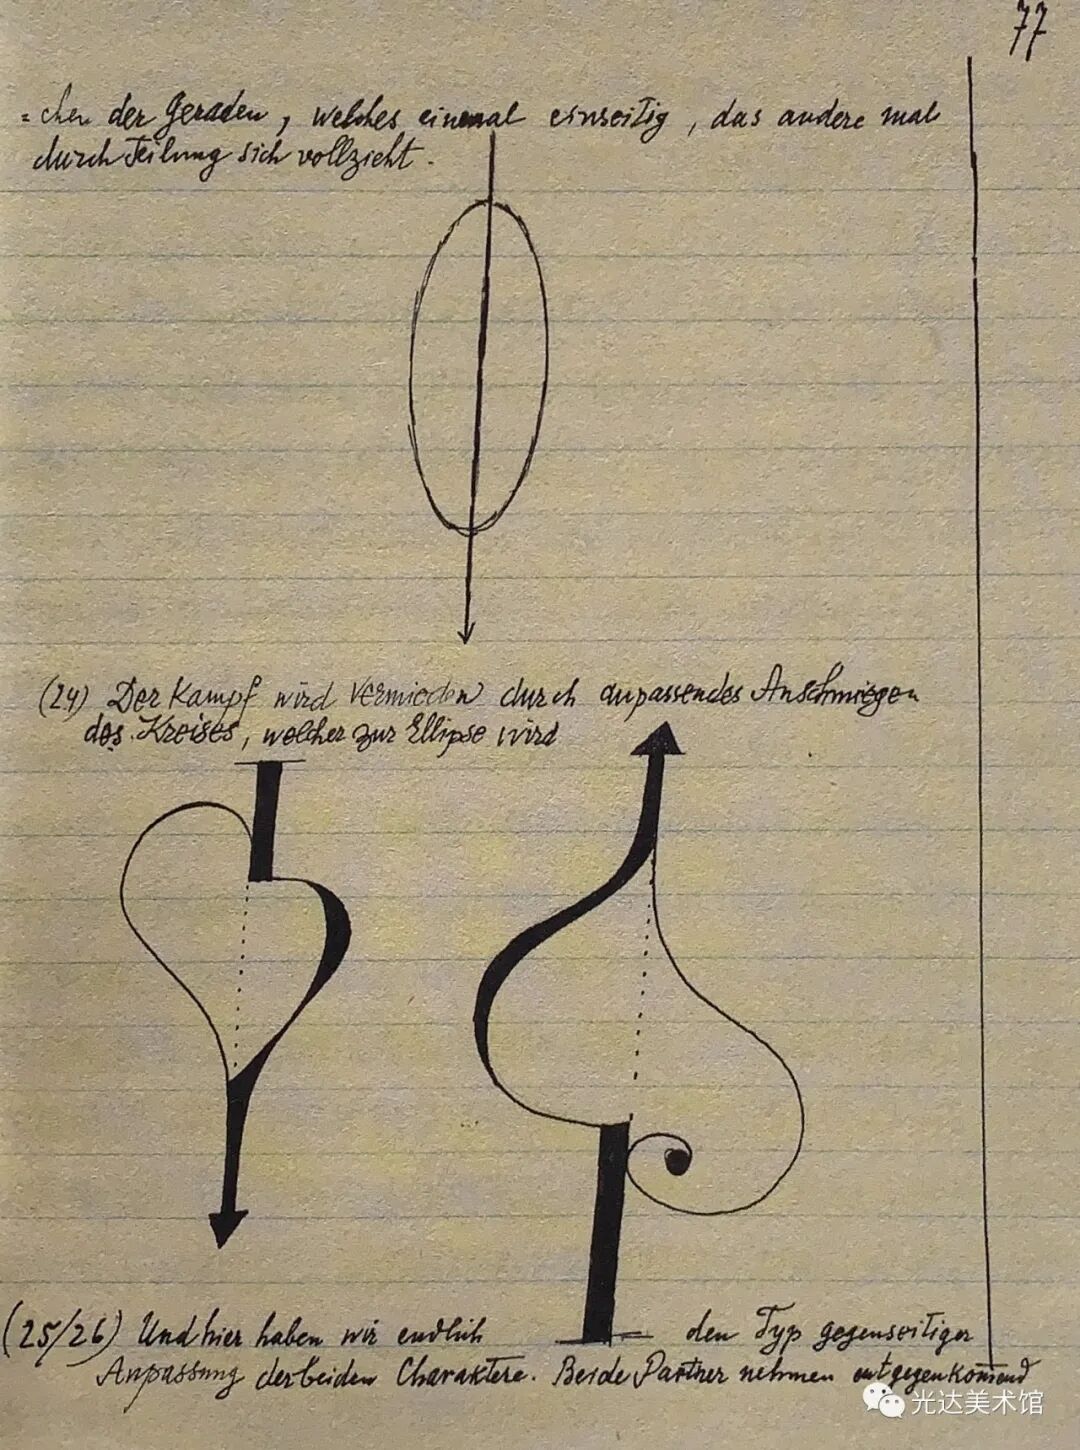 77
=chen der Geraden, welches einmal einseitig, das andere mal
durch Teilung sich vollzieht.
(24) Der Kampf wird vermieden durch anpassendes Anschmiegen
des Kreises, welcher zur Ellipse wird
(25/26) Und hier haben wir endlich den Typ gegenseitiger
Anpassung der beiden Charaktere. Beide Partner nehmen entgegenkommend
光达美术馆